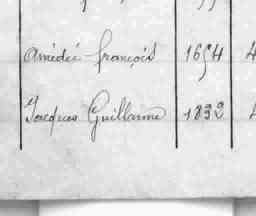 Amédée françois 1654 4
Jacques Guillaume 1832 4